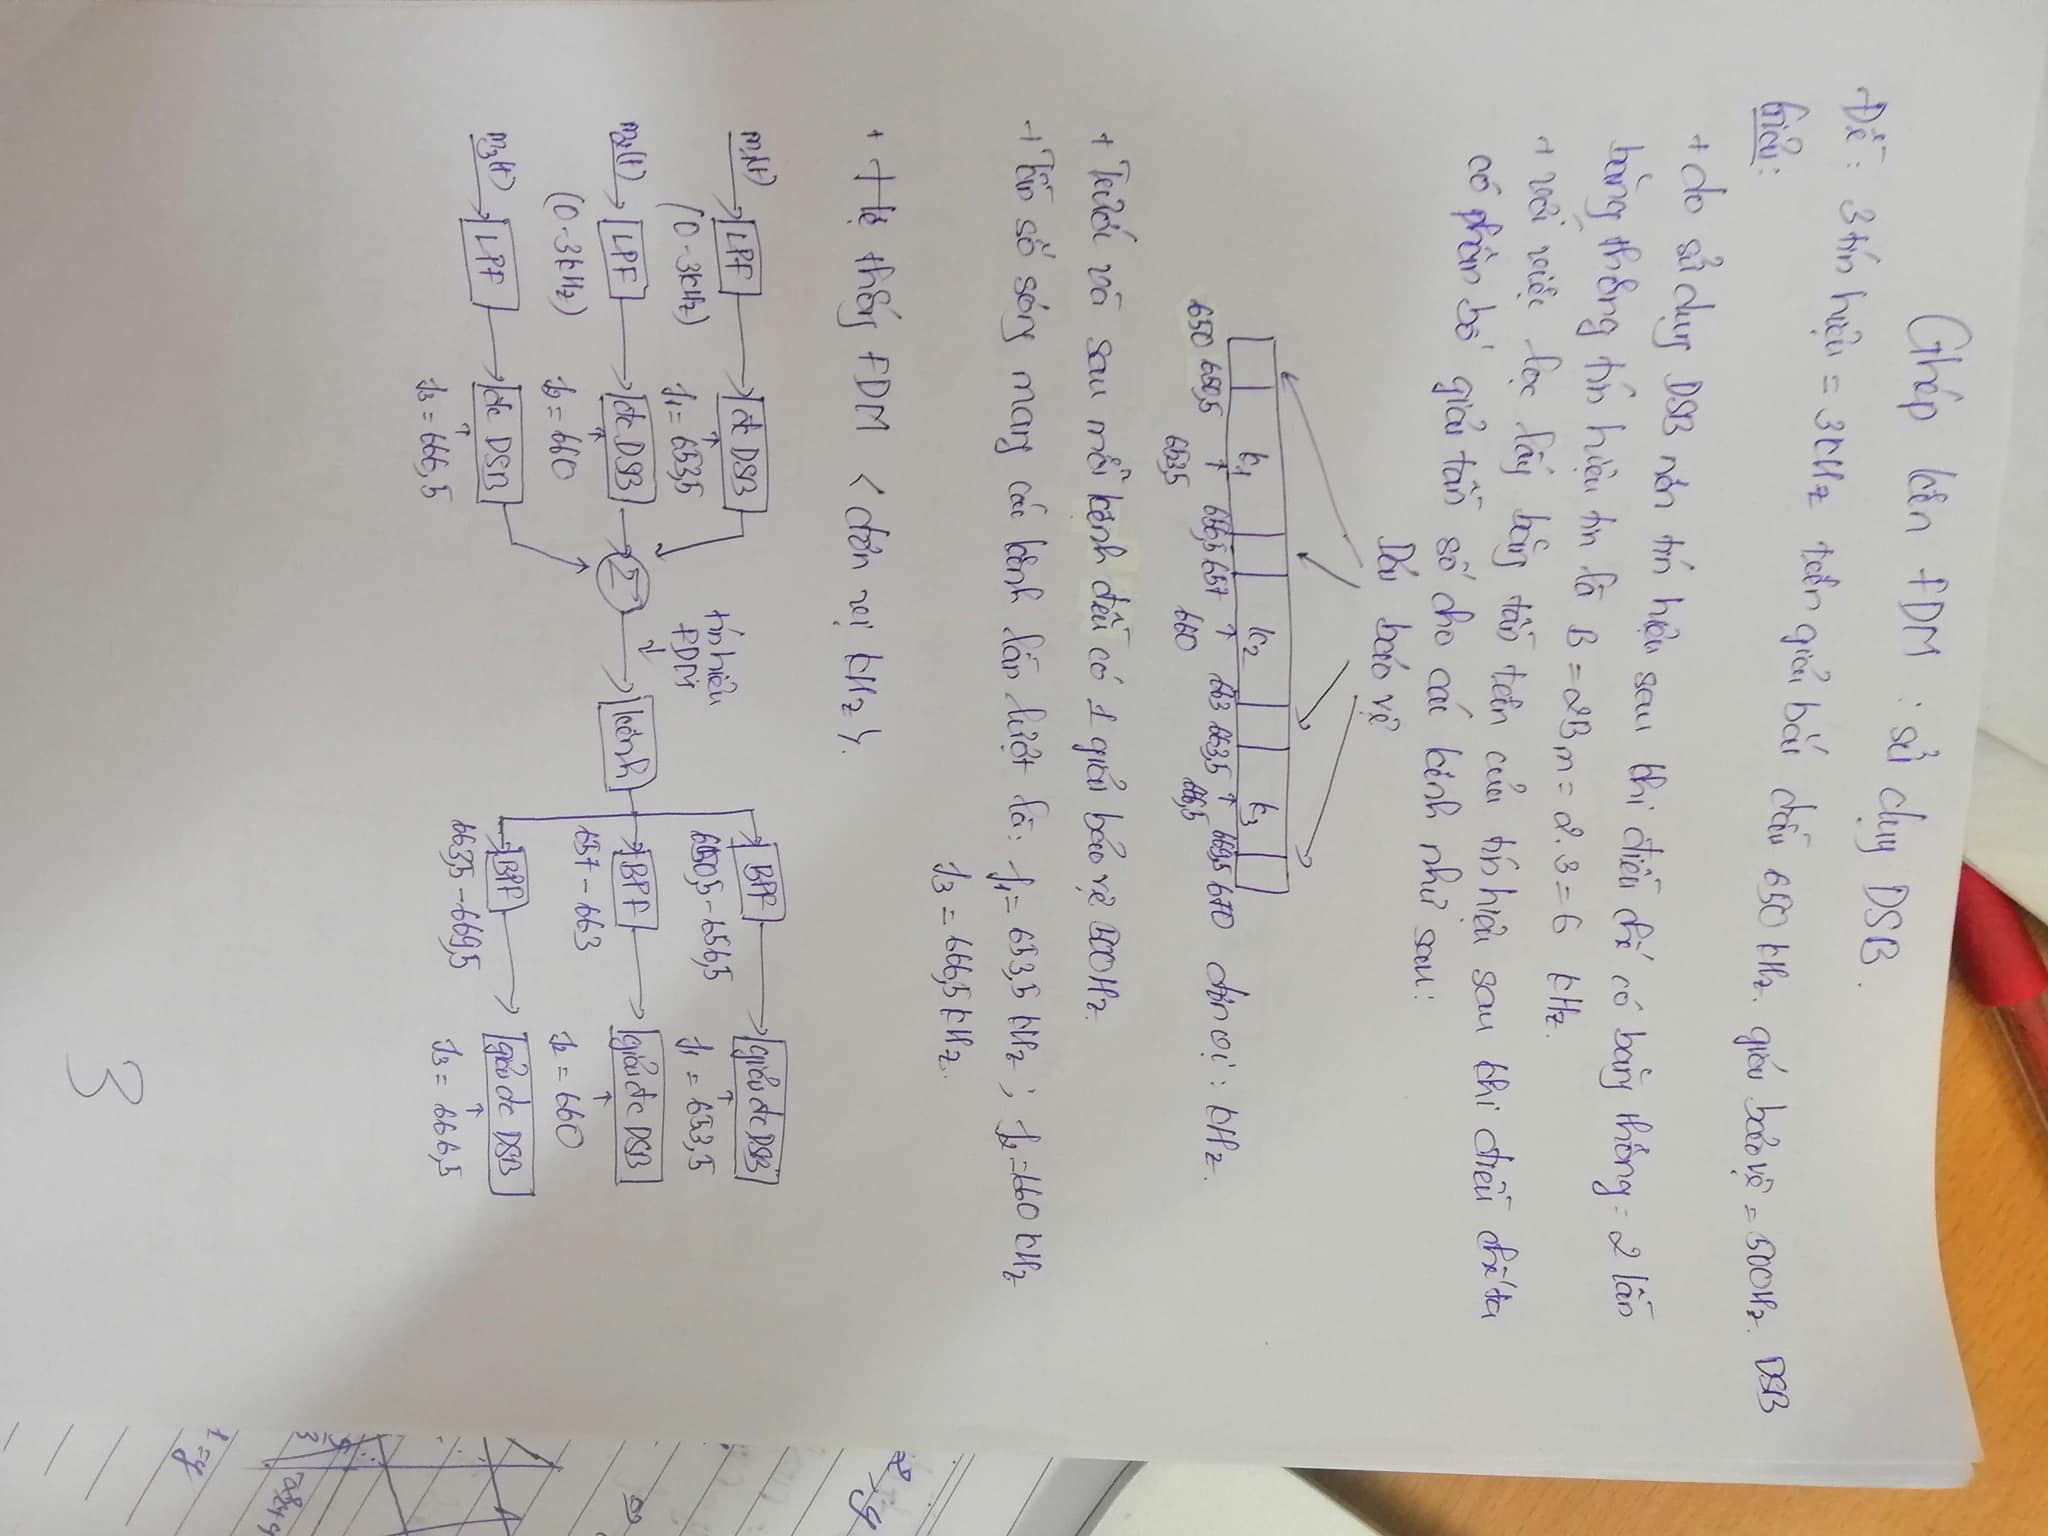 Ghép kên FDM : sử dụng DSB.
Đề : 3 tín hiệu = 3kHz trên giải bắt đầu 650 kHz. giải bảo vệ = 500Hz. DSB
Giải:
+ do sử dụng DSB nên tín hiệu sau khi điều chế có băng thông = 2 lần
băng thông tín hiệu tin là B = 2Bm = 2.3 = 6 kHz.
+ với việc lọc lấy băng tần trên của tín hiệu sau khi điều chế ta
có phân bố giải tần số cho các kênh như sau:
Dải bảo vệ
k1 k2 k3
650 650,5 656,5 657 663 663,5 669,5 670 đơn vị : kHz.
653,5 660 666,5
+ Trước và sau mỗi kênh đều có 1 giải bảo vệ 500Hz.
+ Tần số sóng mang các kênh lần lượt là: f1 = 653,5 kHz ; f2 = 660 kHz
f3 = 666,5 kHz.
+ Hệ thống FDM < đơn vị kHz >.
m1(t) LPF đc DSB BPF giải đc DSB
(0-3kHz) f1 = 653,5 tín hiệu FDM 650,5 - 656,5 f1 = 653,5
m2(t) LPF đc DSB Σ kênh BPF giải đc DSB
(0-3kHz) f2 = 660 657 - 663 f2 = 660
m3(t) LPF đc DSB BPF giải đc DSB
f3 = 666,5 663,5 - 669,5 f3 = 666,5
3